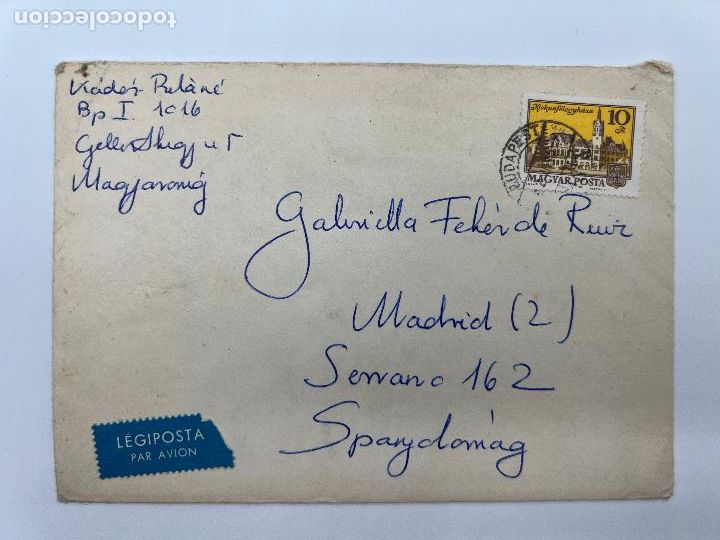 todocoleccion
Kádár Béláné
Bp I. 1016
Gellérthegy u 5
Magyarország
Kiskunfélegyháza
10 Ft
MAGYAR POSTA
BUDAPEST
Gabriella Fehér de Ruiz
Madrid (2)
Serrano 162
Spanyolország
LÉGIPOSTA
PAR AVION